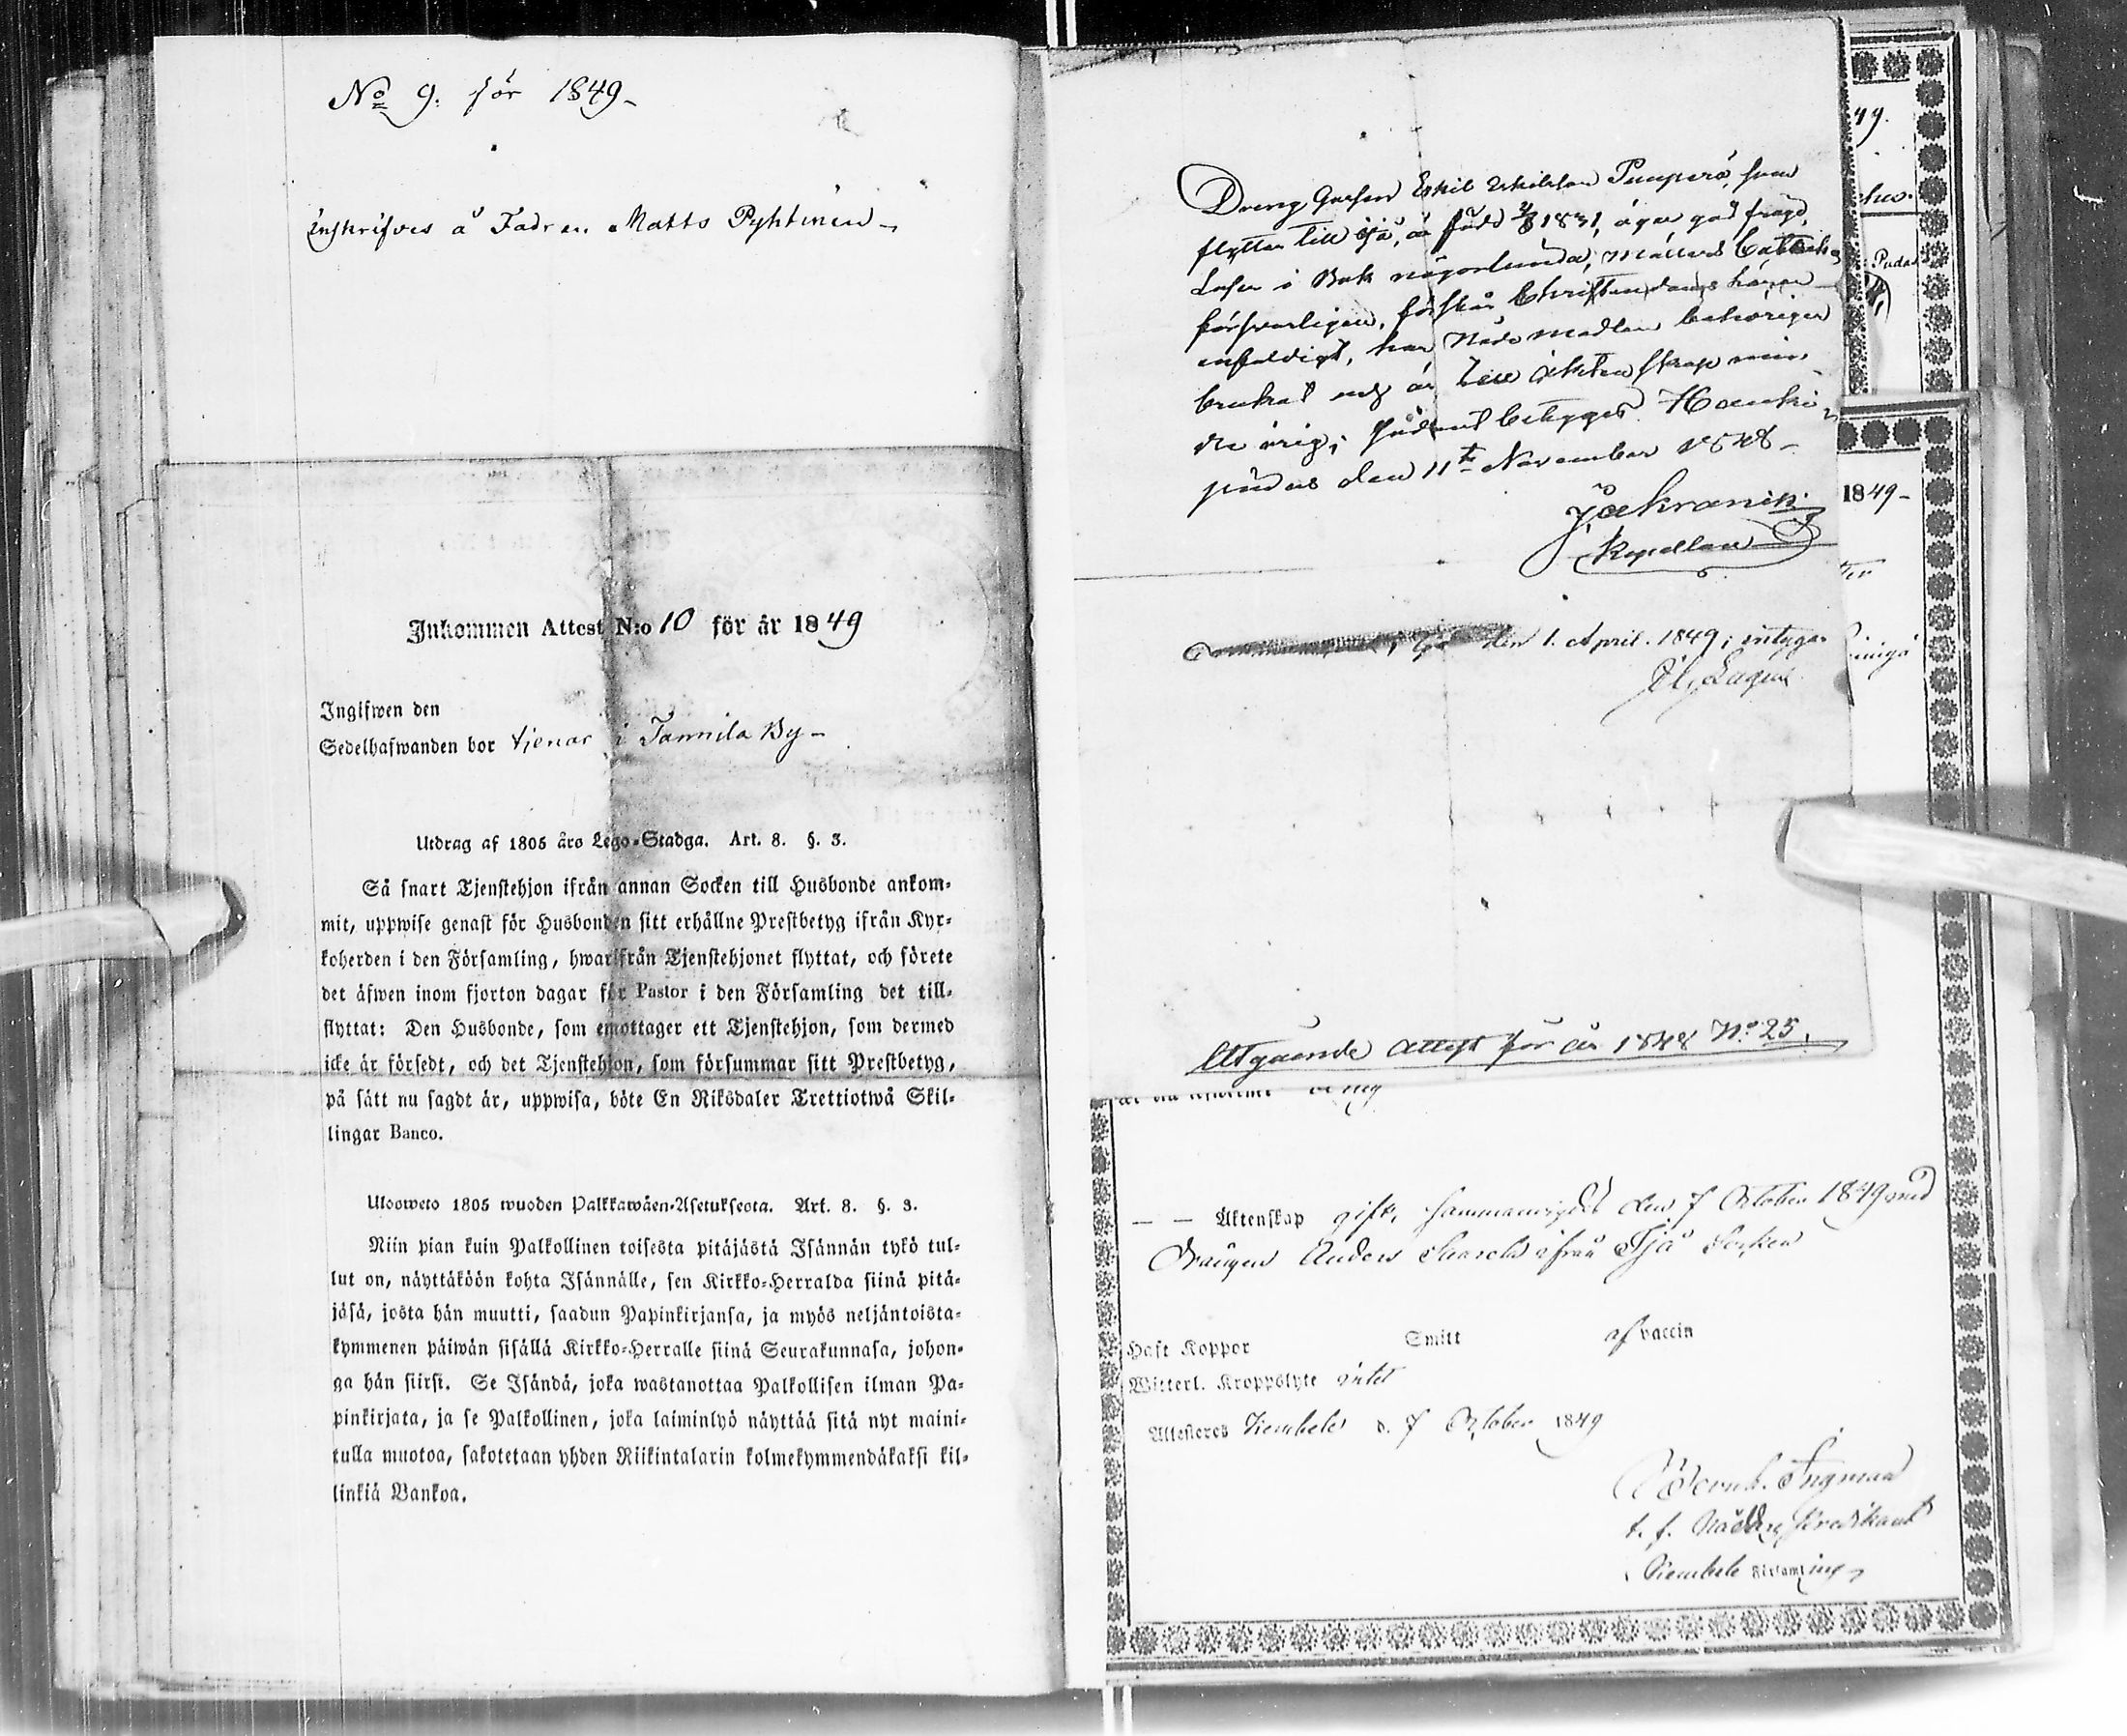 No 9. för 1849-
inskrifves å Fadren Matts Pyhtinen-
Inkommen Attest N:o 10 för år 1849
Ingifwen den
Sedelhafwanden bor tjenar i Tannila By-
Utdrag af 1805 års Lego-Stadga. Art. 8. §. 3.
Så snart Tjenstehjon ifrån annan Socken till Husbonde ankom-
mit, uppwise genast för Husbonden sitt erhållne Prestbetyg ifrån Kyr-
koherden i den Församling, hwarifrån Tjenstehjonet flyttat, och förete
det äfwen inom fjorton dagar för Pastor i den Församling det till-
flyttat: Den Husbonde, som emottager ett Tjenstehjon, som dermed
icke är försedt, och det Tjenstehjon, som försummar sitt Prestbetyg,
på sätt nu sagdt är, uppwisa, böte En Riksdaler Trettiotwå Skil-
lingar Banco.
Ulosweto 1805 wuoden Palkkawäen-Asetuksesta. Art. 8. §. 3.
Niin pian kuin Palkollinen toisesta pitäjästä Isännän tykö tul-
lut on, näyttäköön kohta Isännälle, sen Kirkko-Herralda siinä pitä-
jäsä, josta hän muutti, saadun Papinkirjansa, ja myös neljäntoista-
kymmenen päiwän sisällä Kirkko-Herralle siinä Seurakunnasa, johon-
ga hän siirsi. Se Isändä, joka wastanottaa Palkollisen ilman Pa-
pinkirjata, ja se Palkollinen, joka laiminlyö näyttää sitä nyt maini-
tulla muotoa, sakotetaan yhden Riikintalarin kolmekymmendäkaksi kil-
linkiä Bankoa.
Dreng Gossen Eskil Eskilsson Pumperö, som
flyttar till Ijå, är född 1831, äger god fragd,
Läser i Bok någorlunda, Mällers Catech.
försvarligen, förstår Christendoms läran
enfaldigt, har Nådemedlen behörigen
brukat och är till äktenskap min-
dre årig; sådant betygges Haukipudas den 11te November 1848-
J. Åkranik
Kapellan
Ijå den 1. April. 1849, intygar
Utgående Attest för år 1848 No 25.
49.
1849-
- - Äktenskap gift, sammanvigdt den 7 October 1849 med
Drängen Anders ifrån Ijå Socken
Haft Koppor Smitt af vaccin
Witterl. Kroppslyte intet
Attesteres Kembele d. 7 October 1849
Bernh. Ingman
t. f. Nåd. Predikant
Kembele Församling